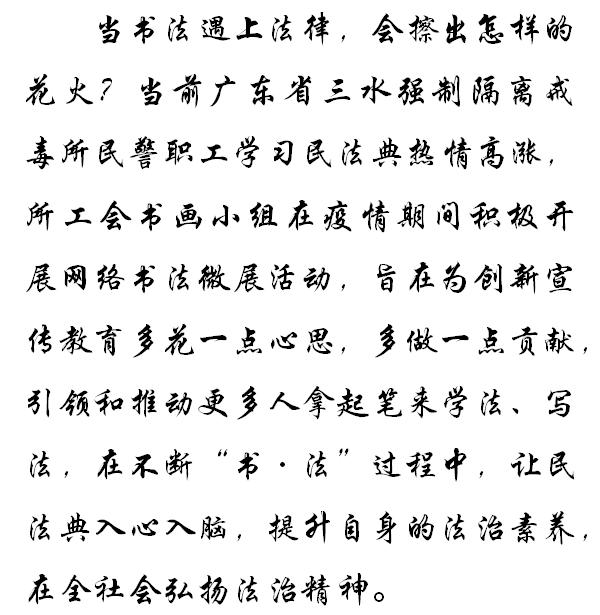 当书法遇上法律，会擦出怎样的
花火？当前广东省三水强制隔离戒
毒所民警职工学习民法典热情高涨，
所工会书画小组在疫情期间积极开
展网络书法微展活动，旨在为创新宣
传教育多花一点心思，多做一点贡献，
引领和推动更多人拿起笔来学法、写
法，在不断“书·法”过程中，让民
法典入心入脑，提升自身的法治素养，
在全社会弘扬法治精神。